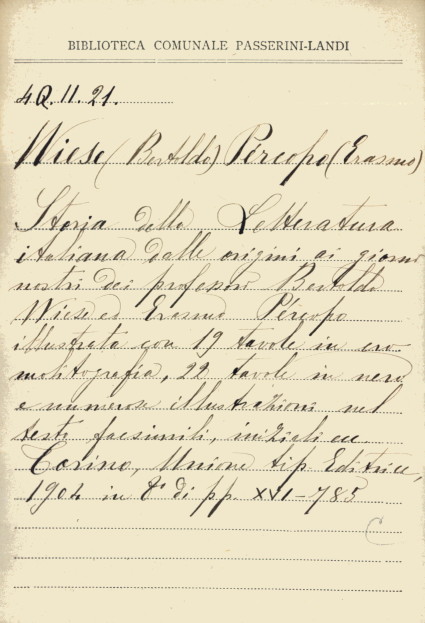 BIBLIOTECA COMUNALE PASSERINI-LANDI
4Q.II.21.
Wiese (Bertoldo) Pércopo (Erasmo)
Storia della Letteratura
italiana dalle origini ai giorni
nostri dei professori Bertoldo
Wiese ed Erasmo Pércopo
illustrata con 19 tavole in cro-
molitografia, 22 tavole in nero
e numerose illustrazioni nel
testo facsimili, iniziali ecc.
Torino, Unione tip. Editrice,
1904 in 8° di pp. XVI-785
C